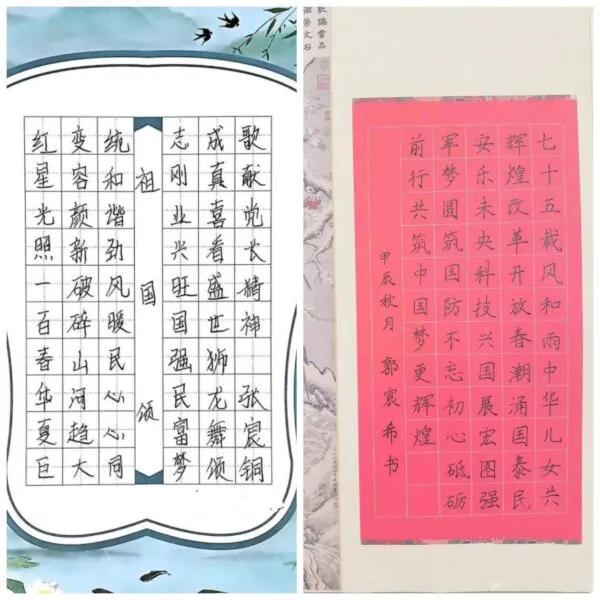 红星光照一百春华夏巨
变容颜新破碎山河趋大
统和谐劲风暖民心心同
祖国颂
志刚业兴旺国强民富梦
成真喜看盛世狮龙舞颂
歌献党长精神 张宸铜
七十五载风和雨中华儿女共
辉煌改革开放春潮涌国泰民
安乐未央科技兴国展宏图强
军梦圆筑国防不忘初心砥砺
前行共筑中国梦更辉煌
甲辰秋月 郭宸希书